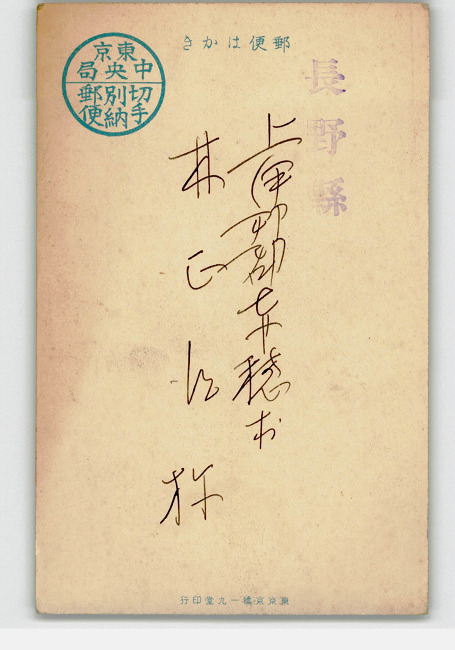 郵便はかき
東京
中央局
切手別納郵便
長野縣
上伊那郡赤穂村
林正治様
東京京橋一九堂印行